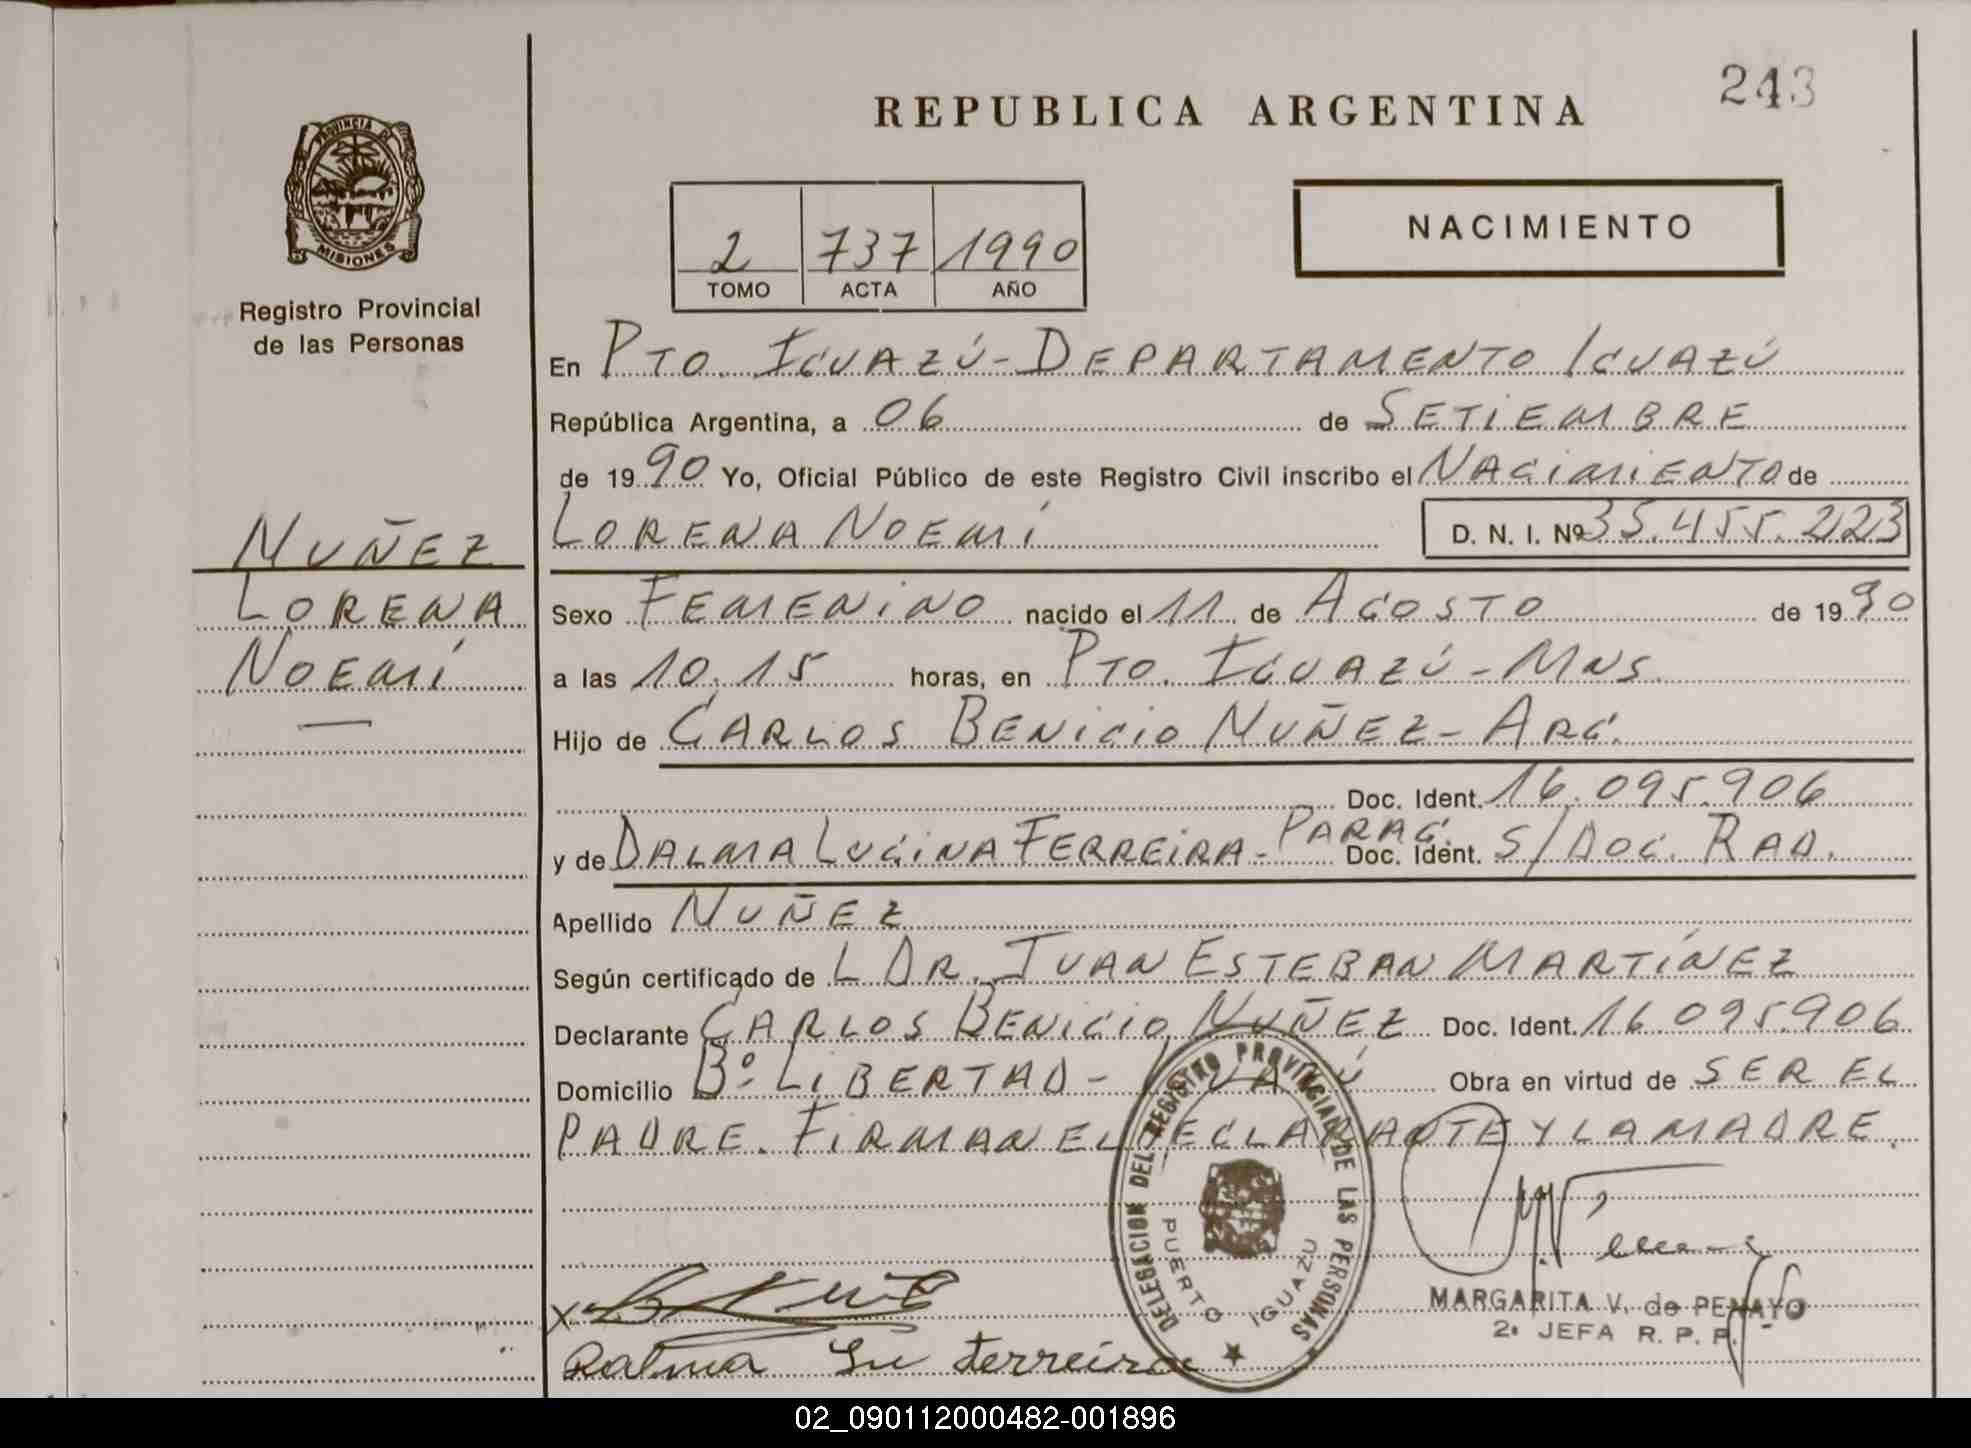 243
REPUBLICA ARGENTINA
PROVINCIA DE
MISIONES
Registro Provincial
de las Personas
2 737 1990
TOMO ACTA AÑO
NACIMIENTO
En PTO. IGUAZÚ - DEPARTAMENTO IGUAZÚ
República Argentina, a 06 de SETIEMBRE
de 1990 Yo, Oficial Público de este Registro Civil inscribo el NACIMIENTO de
LORENA NOEMÍ D. N. I. Nº 35.455.223
NUÑEZ
LORENA
NOEMÍ
Sexo FEMENINO nacido el 11 de AGOSTO de 1990
a las 10.15 horas, en PTO. IGUAZÚ - MNS.
Hijo de CARLOS BENICIO NUÑEZ - ARG.
Doc. Ident. 16.095.906
y de DALMA LUCINA FERREIRA - PARAG. Doc. Ident. S/DOC. RAD.
Apellido NUÑEZ
Según certificado de L DR. JUAN ESTEBAN MARTÍNEZ
Declarante CARLOS BENICIO NUÑEZ Doc. Ident. 16.095.906
Domicilio Bº LIBERTAD - IGUAZÚ Obra en virtud de SER EL
PADRE. FIRMAN EL DECLARANTE Y LA MADRE.
DELEGACION DEL REGISTRO PROVINCIAL DE LAS PERSONAS
PUERTO IGUAZU
MARGARITA V. de PENAYO
2ª JEFA R. P. P.
X
Dalma Lu Ferreira
02_090112000482-001896